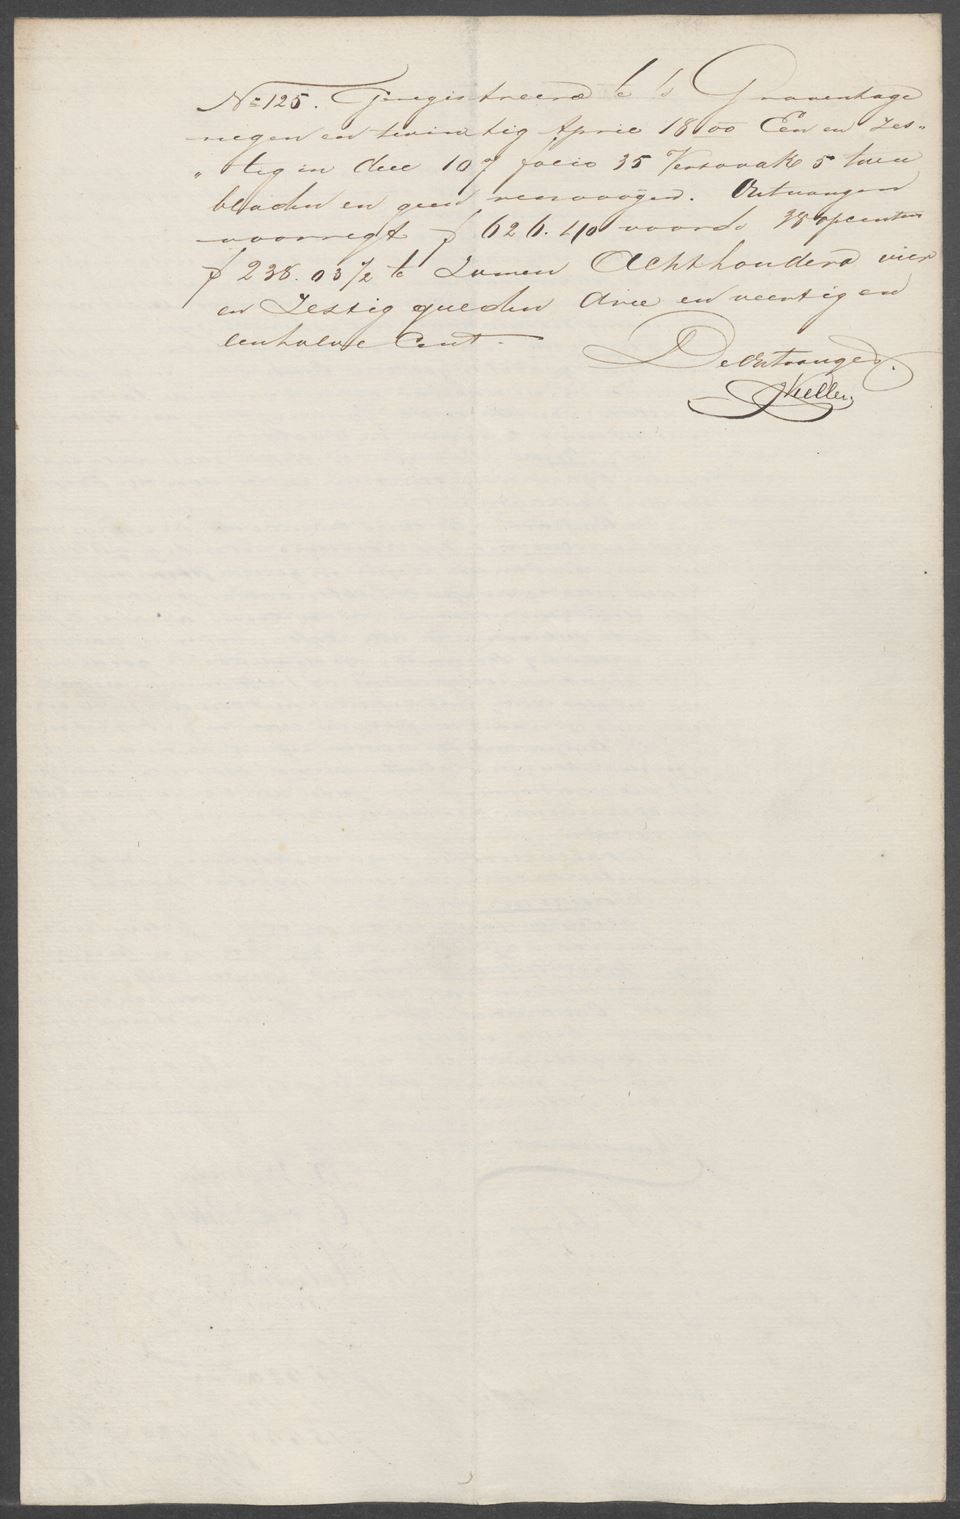 No 125. Geregistreerd te 's Gravenhage
negen en twintig April 1800 Een en Zes„
„tig in deel 107 folio 35 Verso vak 5 twee
bladen en geen renvooijen. Ontvangen
voor regt f 626.40 voor de 38 opcenten
f 238.03½ te Zamen Achthonderd vier
en Zestig gulden drie en veertig en
eenhalve Cent.
De Ontvanger.
JKeller